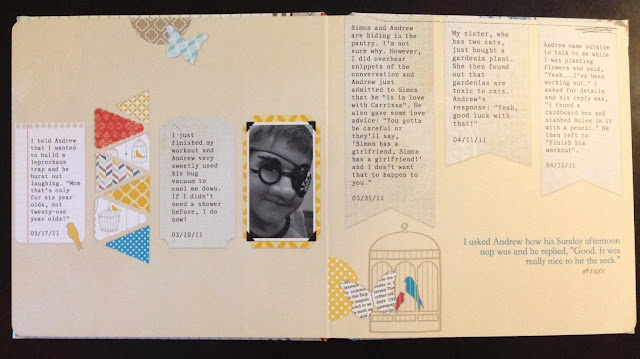 I told Andrew
that I wanted
to build a
leprechaun
trap and he
burst out
laughing. "Mom
that's only
for six year
olds, not
twenty-one
year olds!"
03/17/11
I just
finished my
workout and
Andrew very
sweetly used
his bug
vacuum to
cool me down.
If I didn't
need a shower
before, I do
now!
03/19/11
Simon and Andrew
are hiding in the
pantry. I'm not
sure why. However,
I did overhear
snippets of the
conversation and
Andrew just
admitted to Simon
that he "is in love
with Carrissa". He
also gave some love
advice: "You gotta
be careful or
they'll say,
'Simon has a
girlfriend, Simon
has a girlfriend!'
and I don't want
that to happen to
you."
03/31/11
My sister, who
has two cats,
just bought a
gardenia plant.
She then found
out that
gardenias are
toxic to cats.
Andrew's
response: "Yeah,
good luck with
that!"
04/11/11
Andrew came outside
to talk to me while
I was planting
flowers and said,
"Yeah...I've been
working out." I
asked for details
and his reply was,
"I found a
cardboard box and
stabbed holes in it
with a pencil." He
then left to
"finish his
workout".
04/13/11
I asked Andrew how his Sunday afternoon
nap was and he replied, "Good. It was
really nice to hit the sack."